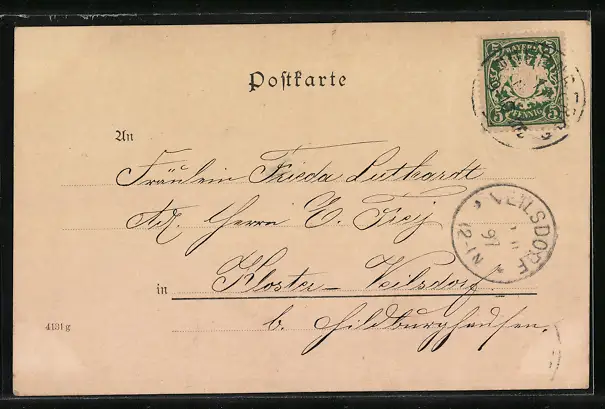 Postkarte
BAYERN
5 PFENNIG 5
An
Fräulein Frieda Luthardt
Adr. Herrn E. Frej
VEILSDORF
97
12-1N
in Kloster-Veilsdorf
b. Hildburghausen.
4181g